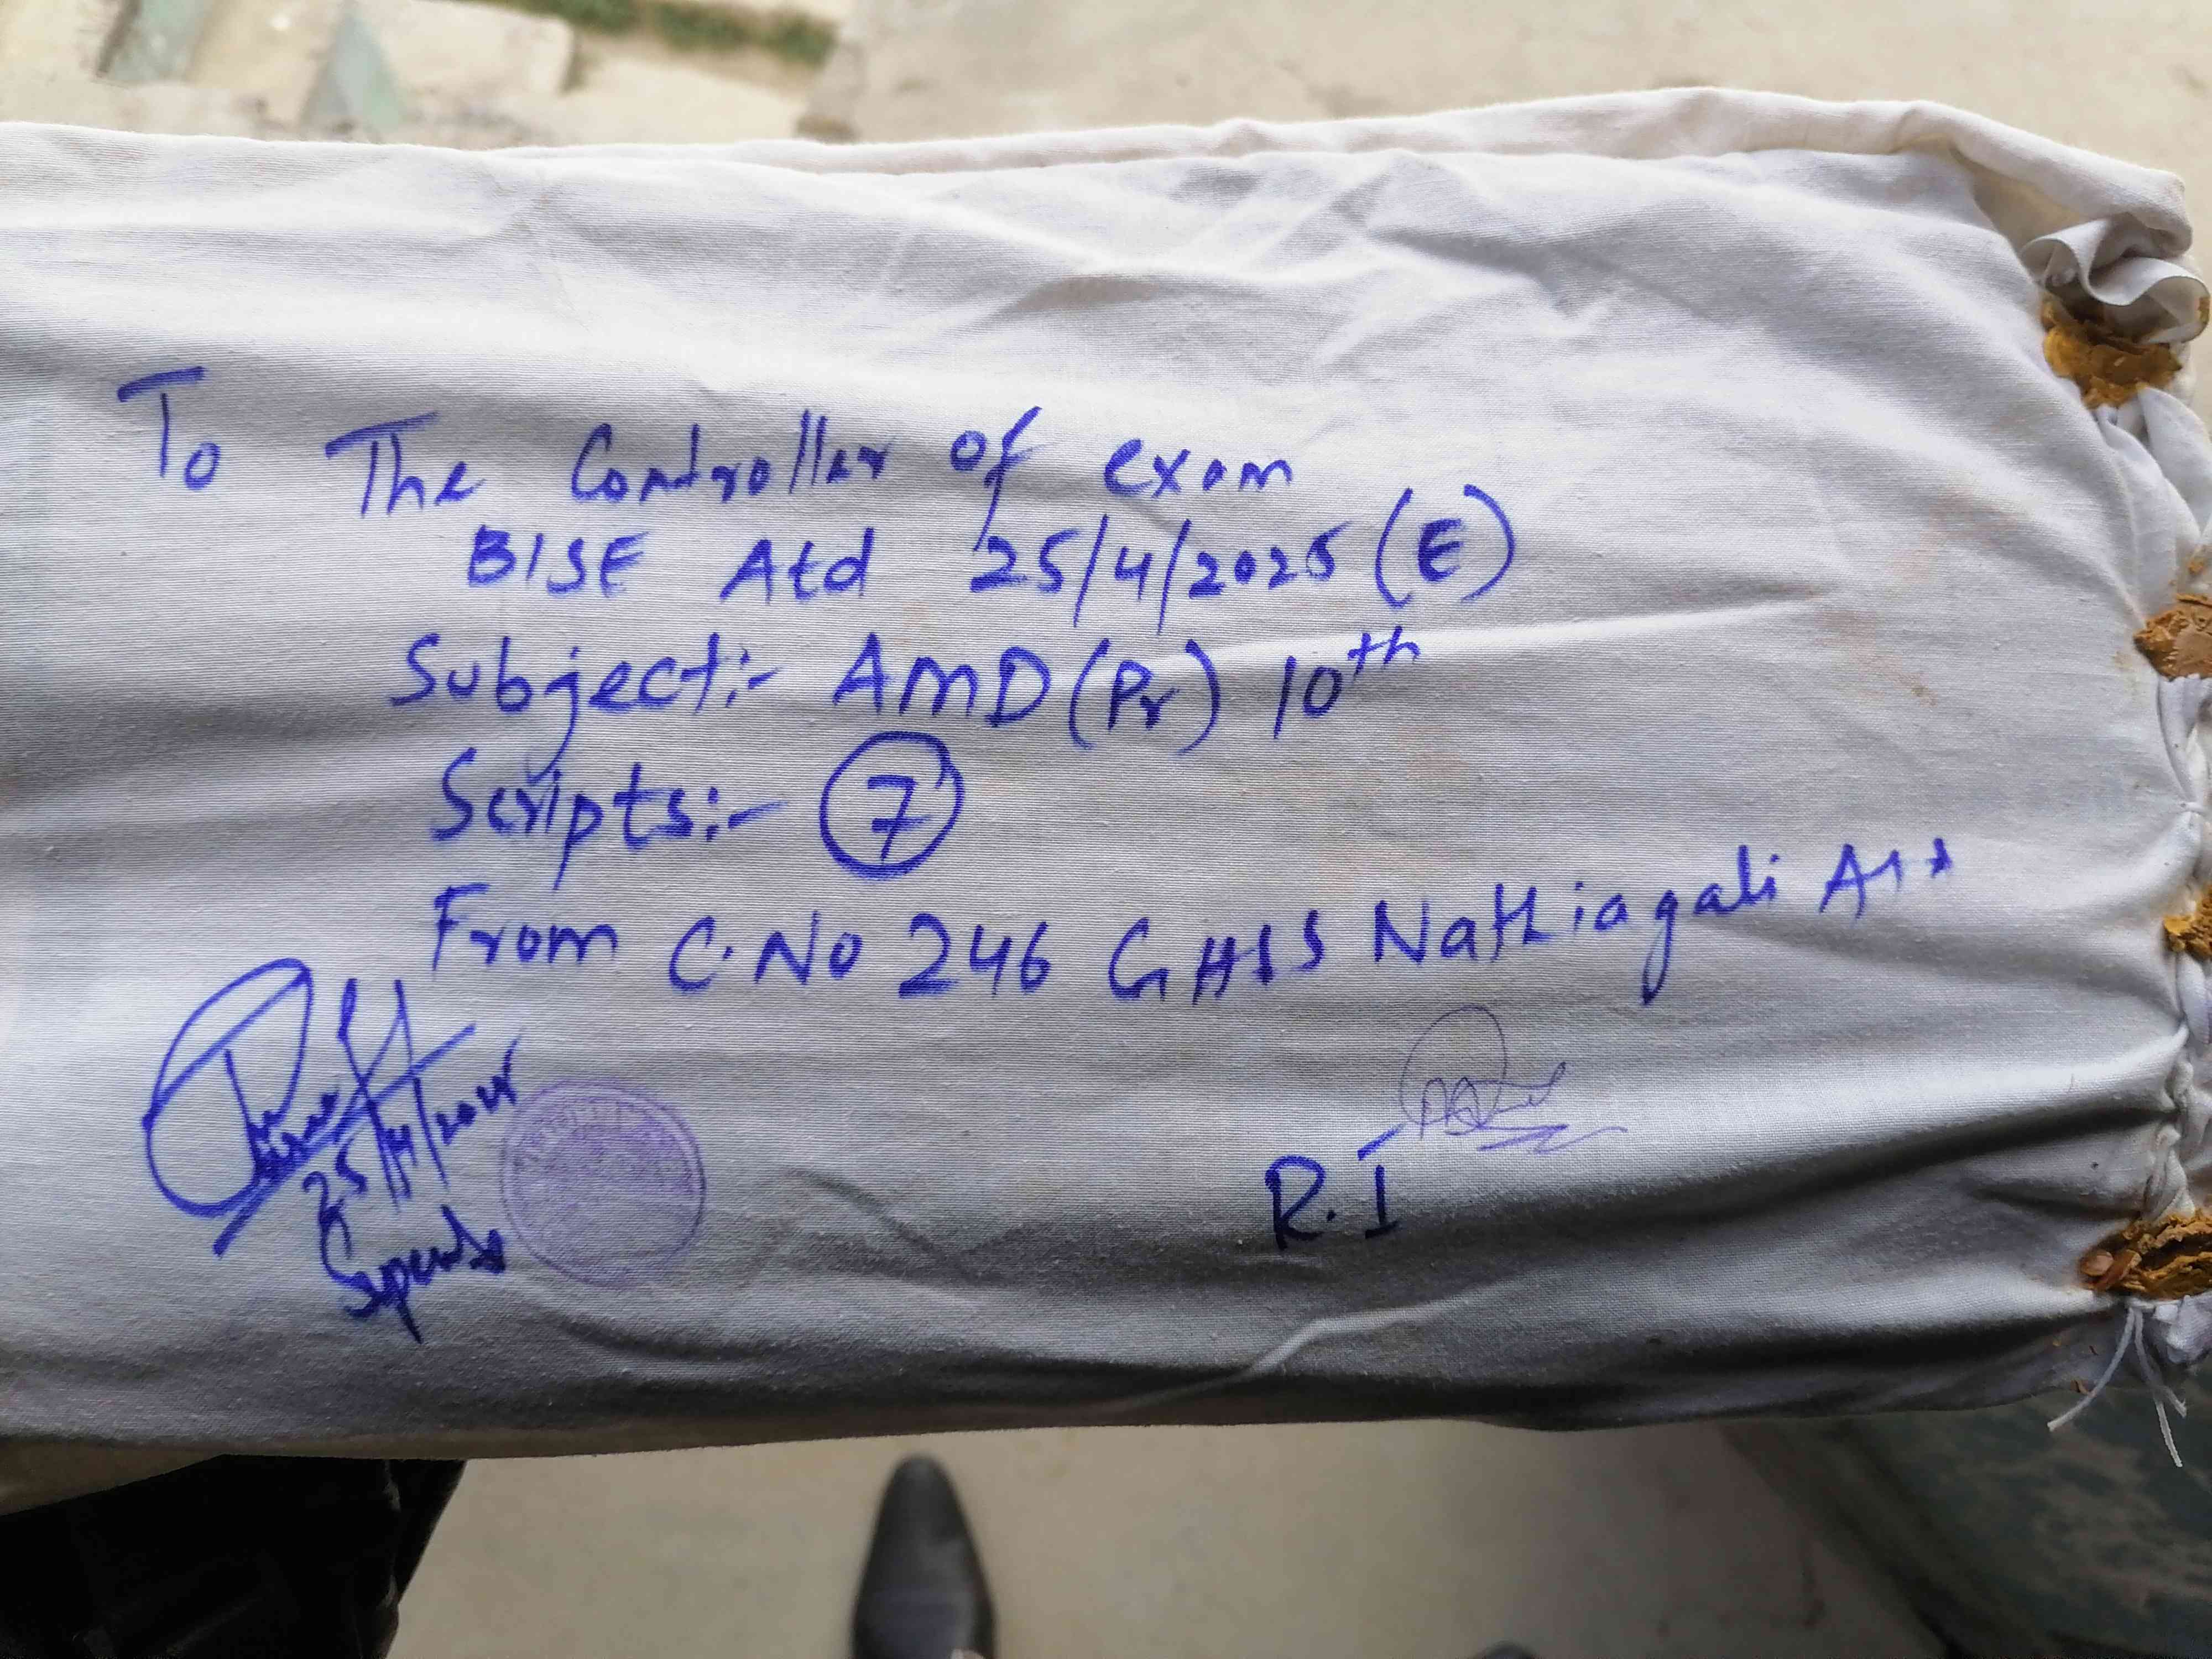 To
The Controller of exam
BISE Atd 25/4/2025 (E)
Subject:- AMD (Pr) 10th
Scripts:- 7
From C.No 246 GHSS Nathiagali
25/4/2025
R.I